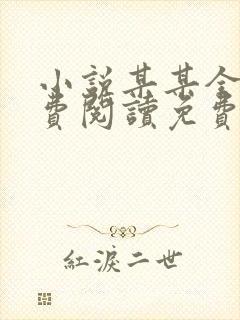 小說某某全
費閱讀免費
紅淚二世